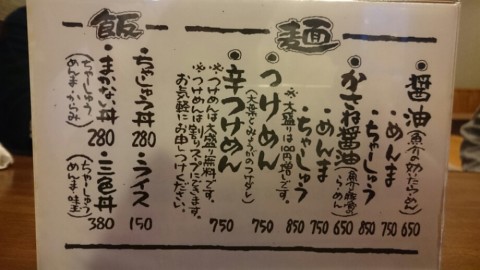 麺
・醤油（魚介の効いたらーめん） 650
めんま 750
ちゃーしゅう 850
・かさね醤油（魚介豚骨のらーめん） 650
めんま 750
ちゃーしゅう 850
※大盛りは100円増しです。
・つけめん 750
・辛つけめん 750
※つけめんは大盛り無料です。
※つけめんは割りスープにできます。
お気軽にお申しつけください。
飯
・ちゃしゅう丼 280
・ライス 150
・まかない丼 280
（ちゃーしゅう めんま・からみ）
・三色丼 380
（ちゃーしゅう めんま・味玉）